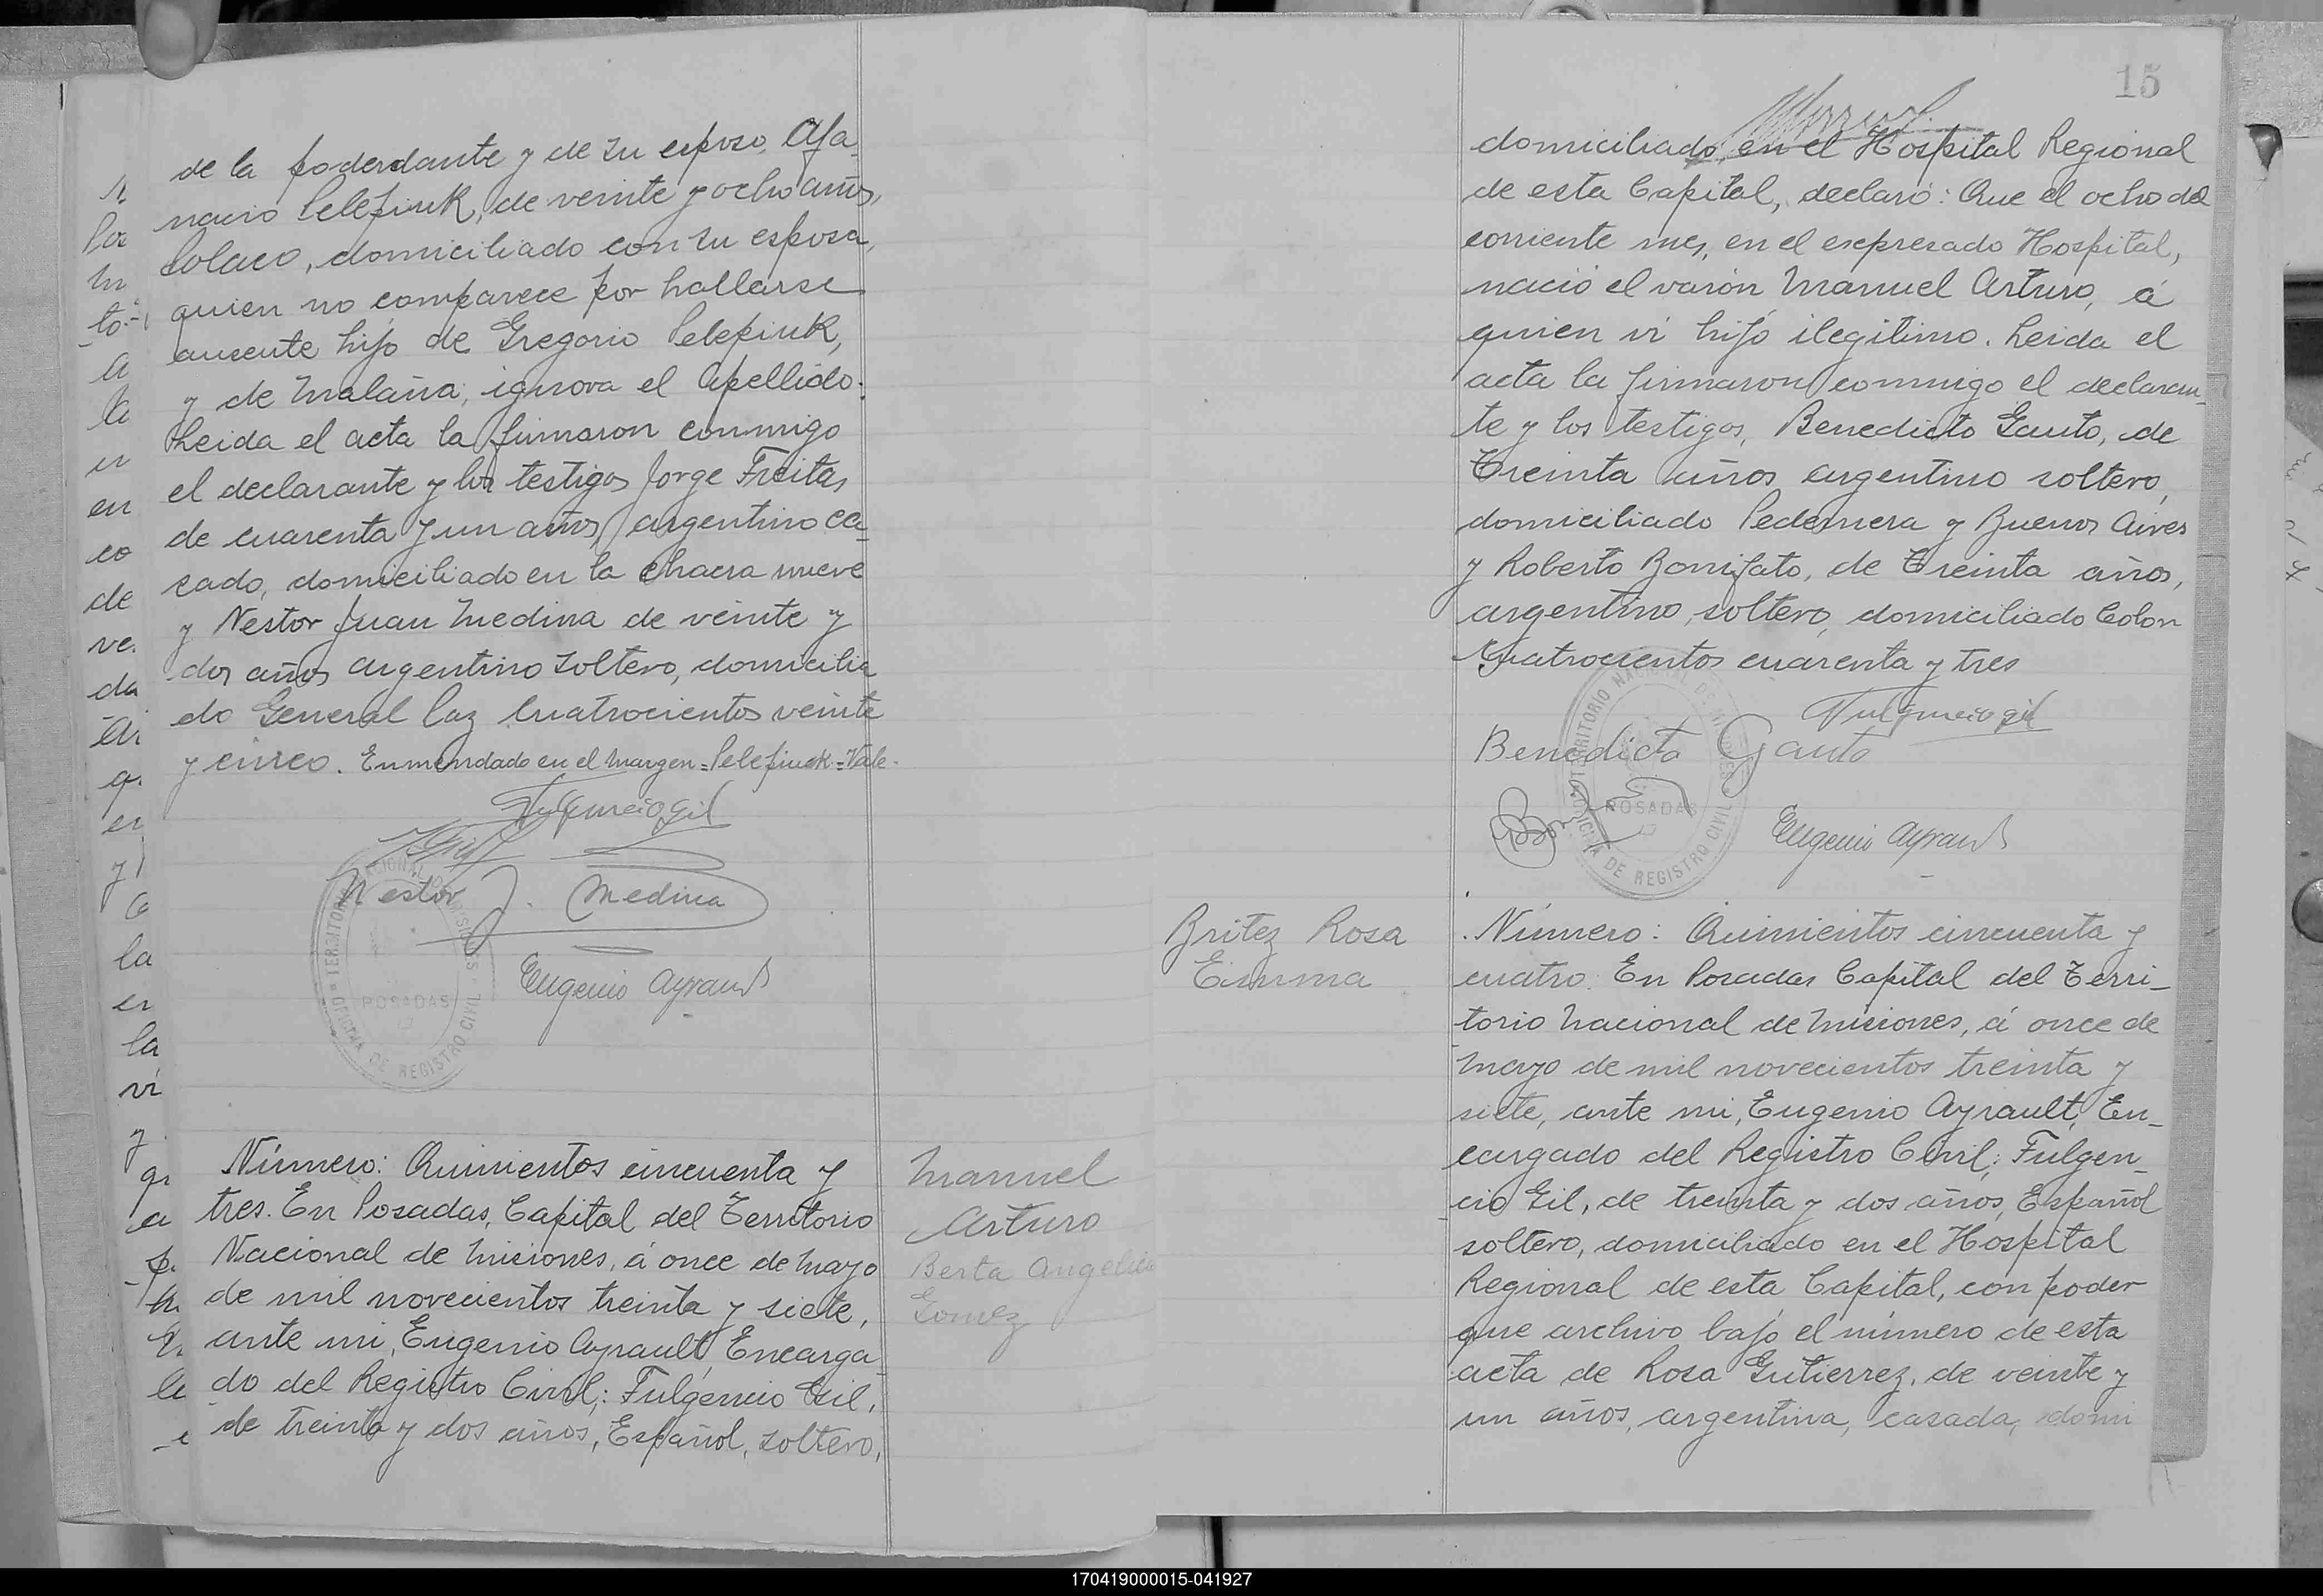 de la poderdante y de su esposo, Afa-
nacio Pelepiuk, de veinte y ocho años,
Polaco, domiciliado con su esposa,
quien no comparece por hallarse
ausente hijo de Gregorio Pelepiuk,
y de Malaña, ignora el apellido.
Leida el acta la firmaron conmigo
el declarante y los testigos Jorge Freitas
de cuarenta y un años, argentino ca-
sado, domiciliado en la chacra nueve
y Nestor Juan Medina de veinte y
dos años argentino soltero, domicilia
do General Paz Cuatrocientos veinte
y cinco. Enmendado en el margen=Pelepiuk=Vale.
Fulgencio Gil
Nestor J. Medina
Eugenio Ayrault
TERRITORIO NACIONAL DE MISIONES
POSADAS
OFICINA DE REGISTRO CIVIL
Número: Quinientos cincuenta y
tres. En Posadas, Capital del Territorio
Nacional de Misiones, á once de Mayo
de mil novecientos treinta y siete,
ante mi, Eugenio Ayrault, Encarga
do del Registro Civil; Fulgencio Gil,
de treinta y dos años, Español, soltero,
Manuel
Arturo
Berta Angelica
Gomez
15
domiciliado, en el Hospital Regional
de esta Capital, declaró: Que el ocho del
corriente mes, en el expresado Hospital,
nació el varón Manuel Arturo, á
quien vi hijo ilegitimo. Leida el
acta la firmaron conmigo el declaran-
te y los testigos, Benedicto Gauto, de
Treinta años argentino soltero,
domiciliado Pedernera y Buenos Aires
y Roberto Bonifato, de Treinta años,
argentino, soltero, domiciliado Colon
Cuatrocientos cuarenta y tres
Fulgencio Gil
Benedicto Gauto
Eugenio Ayrault
TERRITORIO NACIONAL DE MISIONES
POSADAS
OFICINA DE REGISTRO CIVIL
Britez Rosa
Emma
Número: Quinientos cincuenta y
cuatro. En Posadas Capital del Terri-
torio Nacional de Misiones, á once de
Mayo de mil novecientos treinta y
siete, ante mi, Eugenio Ayrault, En-
cargado del Registro Civil; Fulgen-
cio Gil, de treinta y dos años, Español
soltero, domiciliado en el Hospital
Regional de esta Capital, con poder
que archivo bajo el número de esta
acta de Rosa Gutierrez, de veinte y
un años, argentina, casada, domi
170419000015-041927